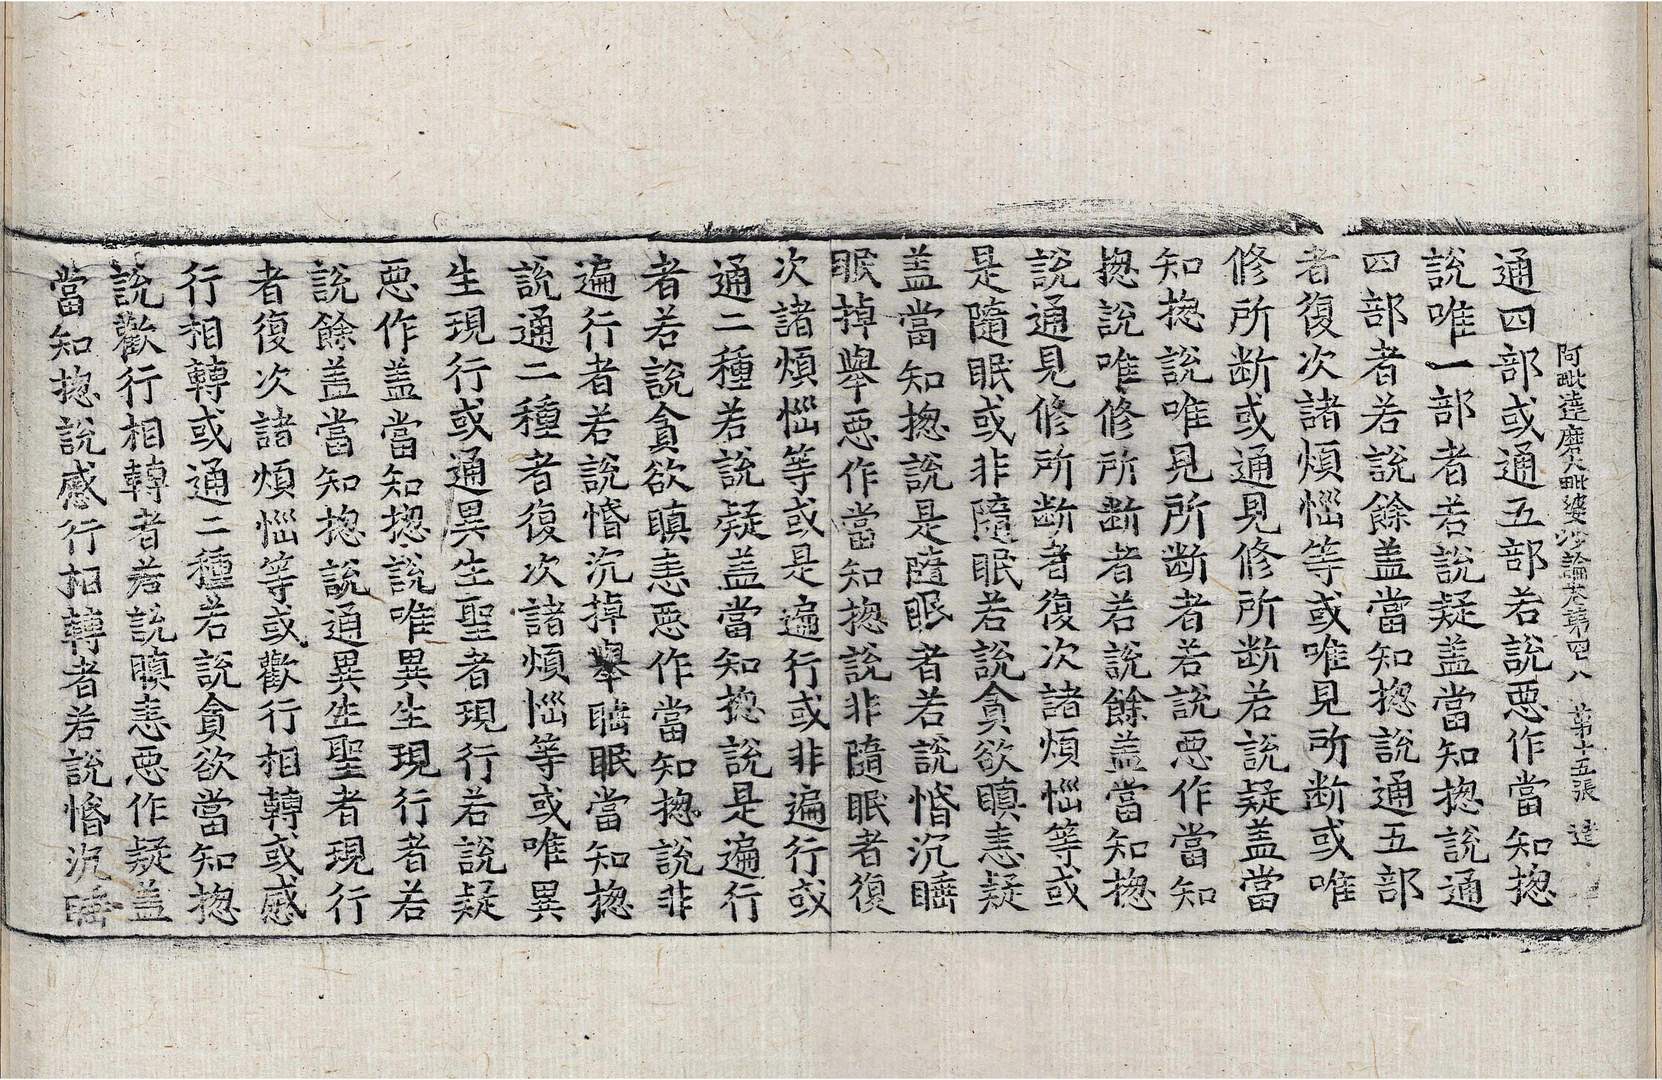 阿毗達磨大毗婆沙論卷第四八 第十五張 達
通四部或通五部若說惡作當知揔
說唯一部者若說疑盖當知揔說通
四部者若說餘盖當知揔說通五部
者復次諸煩惱等或唯見所断或唯
修所断或通見修所断若說疑盖當
知揔說唯見所断者若說惡作當知
揔說唯修所断者若說餘盖當知揔
說通見修所断者復次諸煩惱等或
是隨眠或非隨眠若說貪欲瞋恚疑
盖當知揔說是隨眠者若說惛沉睡
眠掉舉惡作當知揔說非隨眠者復
次諸煩惱等或是遍行或非遍行或
通二種若說疑盖當知揔說是遍行
者若說貪欲瞋恚惡作當知揔說非
遍行者若說惛沉掉舉睡眠當知揔
說通二種者復次諸煩惱等或唯異
生現行或通異生聖者現行若說疑
惡作盖當知揔說唯異生現行者若
說餘盖當知揔說通異生聖者現行
者復次諸煩惱等或歡行相轉或慼
行相轉或通二種若說貪欲當知揔
說歡行相轉者若說瞋恚惡作疑盖
當知揔說慼行相轉者若說惛沉睡